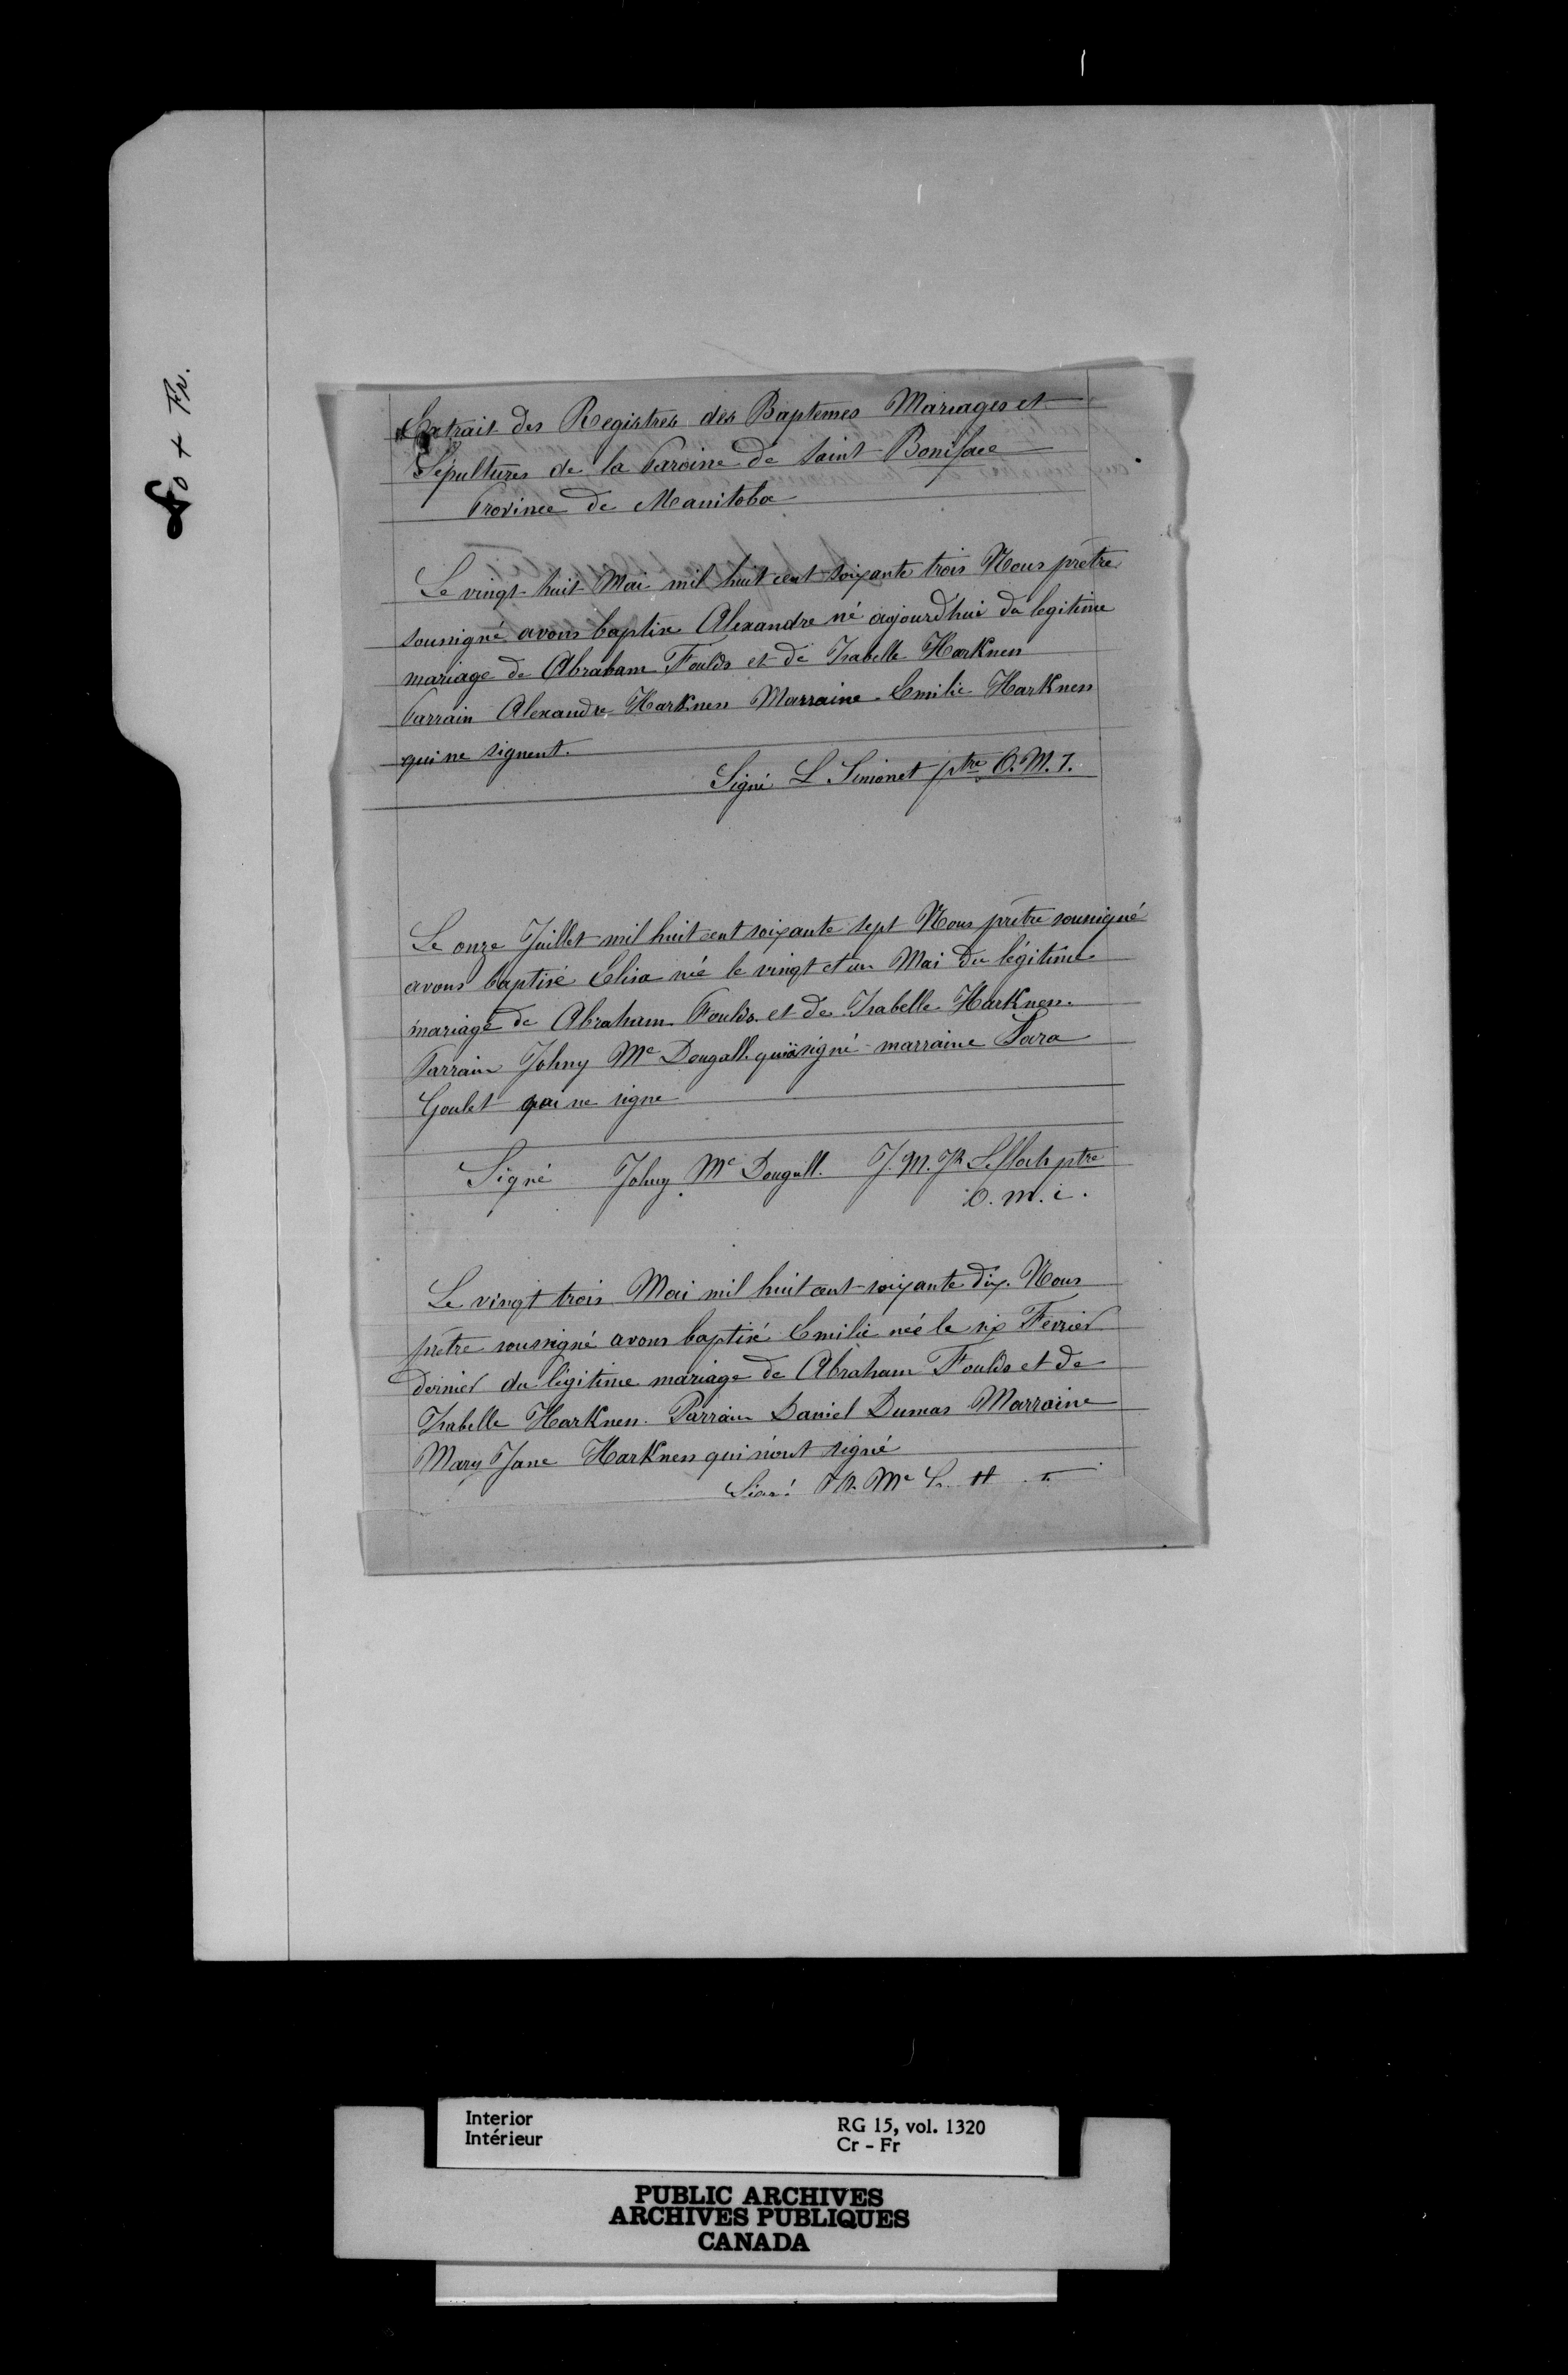 Fo + Fr.
Extrait des Registres des Baptemes Mariages et
Sépultures de la Paroisse de Saint Boniface
Province de Manitoba
Le vingt huit Mai mil huit cent soixante trois Nous prêtre
soussigné avons baptise Alexandre né aujourd'hui du legitime
mariage de Abraham Foulds et de Isabelle Harkness
Parrain Alexandre Harkness Marraine Emilie Harkness
qui ne signent.
Signé L Simonet ptre O.M.I.
Le onze Juillet mil huit cent soixante sept Nous prêtre soussigné
avons baptisé Elisa née le vingt et un Mai du légitime
mariage de Abraham Foulds et de Isabelle Harkness.
Parrain Johny Mc Dougall qui a signé marraine Sara
Goulet qui ne signe
Signé Johny Mc Dougall. J. M. J. Lefloch ptre
O. m. i.
Le vingt trois Mai mil huit cent soixante dix. Nous
prêtre soussigné avons baptisé Emilie née le six Fevrier
dernier du légitime mariage de Abraham Foulds et de
Isabelle Harkness. Parrain Daniel Dumas Marraine
Mary Jane Harkness qui n'ont signé
Signé Mc
Interior
Intérieur
RG 15, vol. 1320
Cr - Fr
PUBLIC ARCHIVES
ARCHIVES PUBLIQUES
CANADA